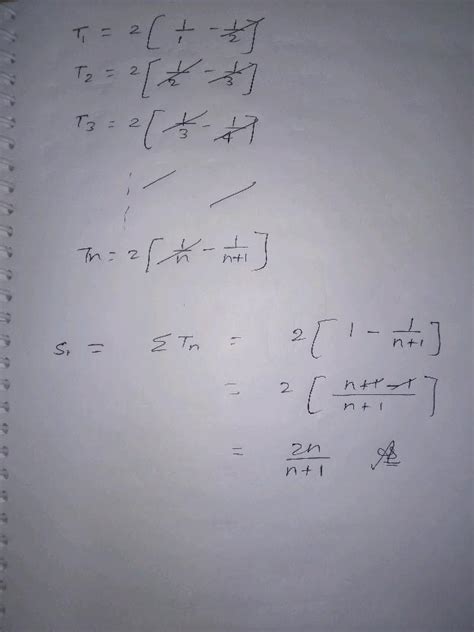 T₁ = 2 [ 1/1 - 1/2 ]
T₂ = 2 [ 1/2 - 1/3 ]
T₃ = 2 [ 1/3 - 1/4 ]
Tn = 2 [ 1/n - 1/n+1 ]
S₁ = Σ Tn = 2 [ 1 - 1/n+1 ]
= 2 [ n+1-1/n+1 ]
= 2n/n+1